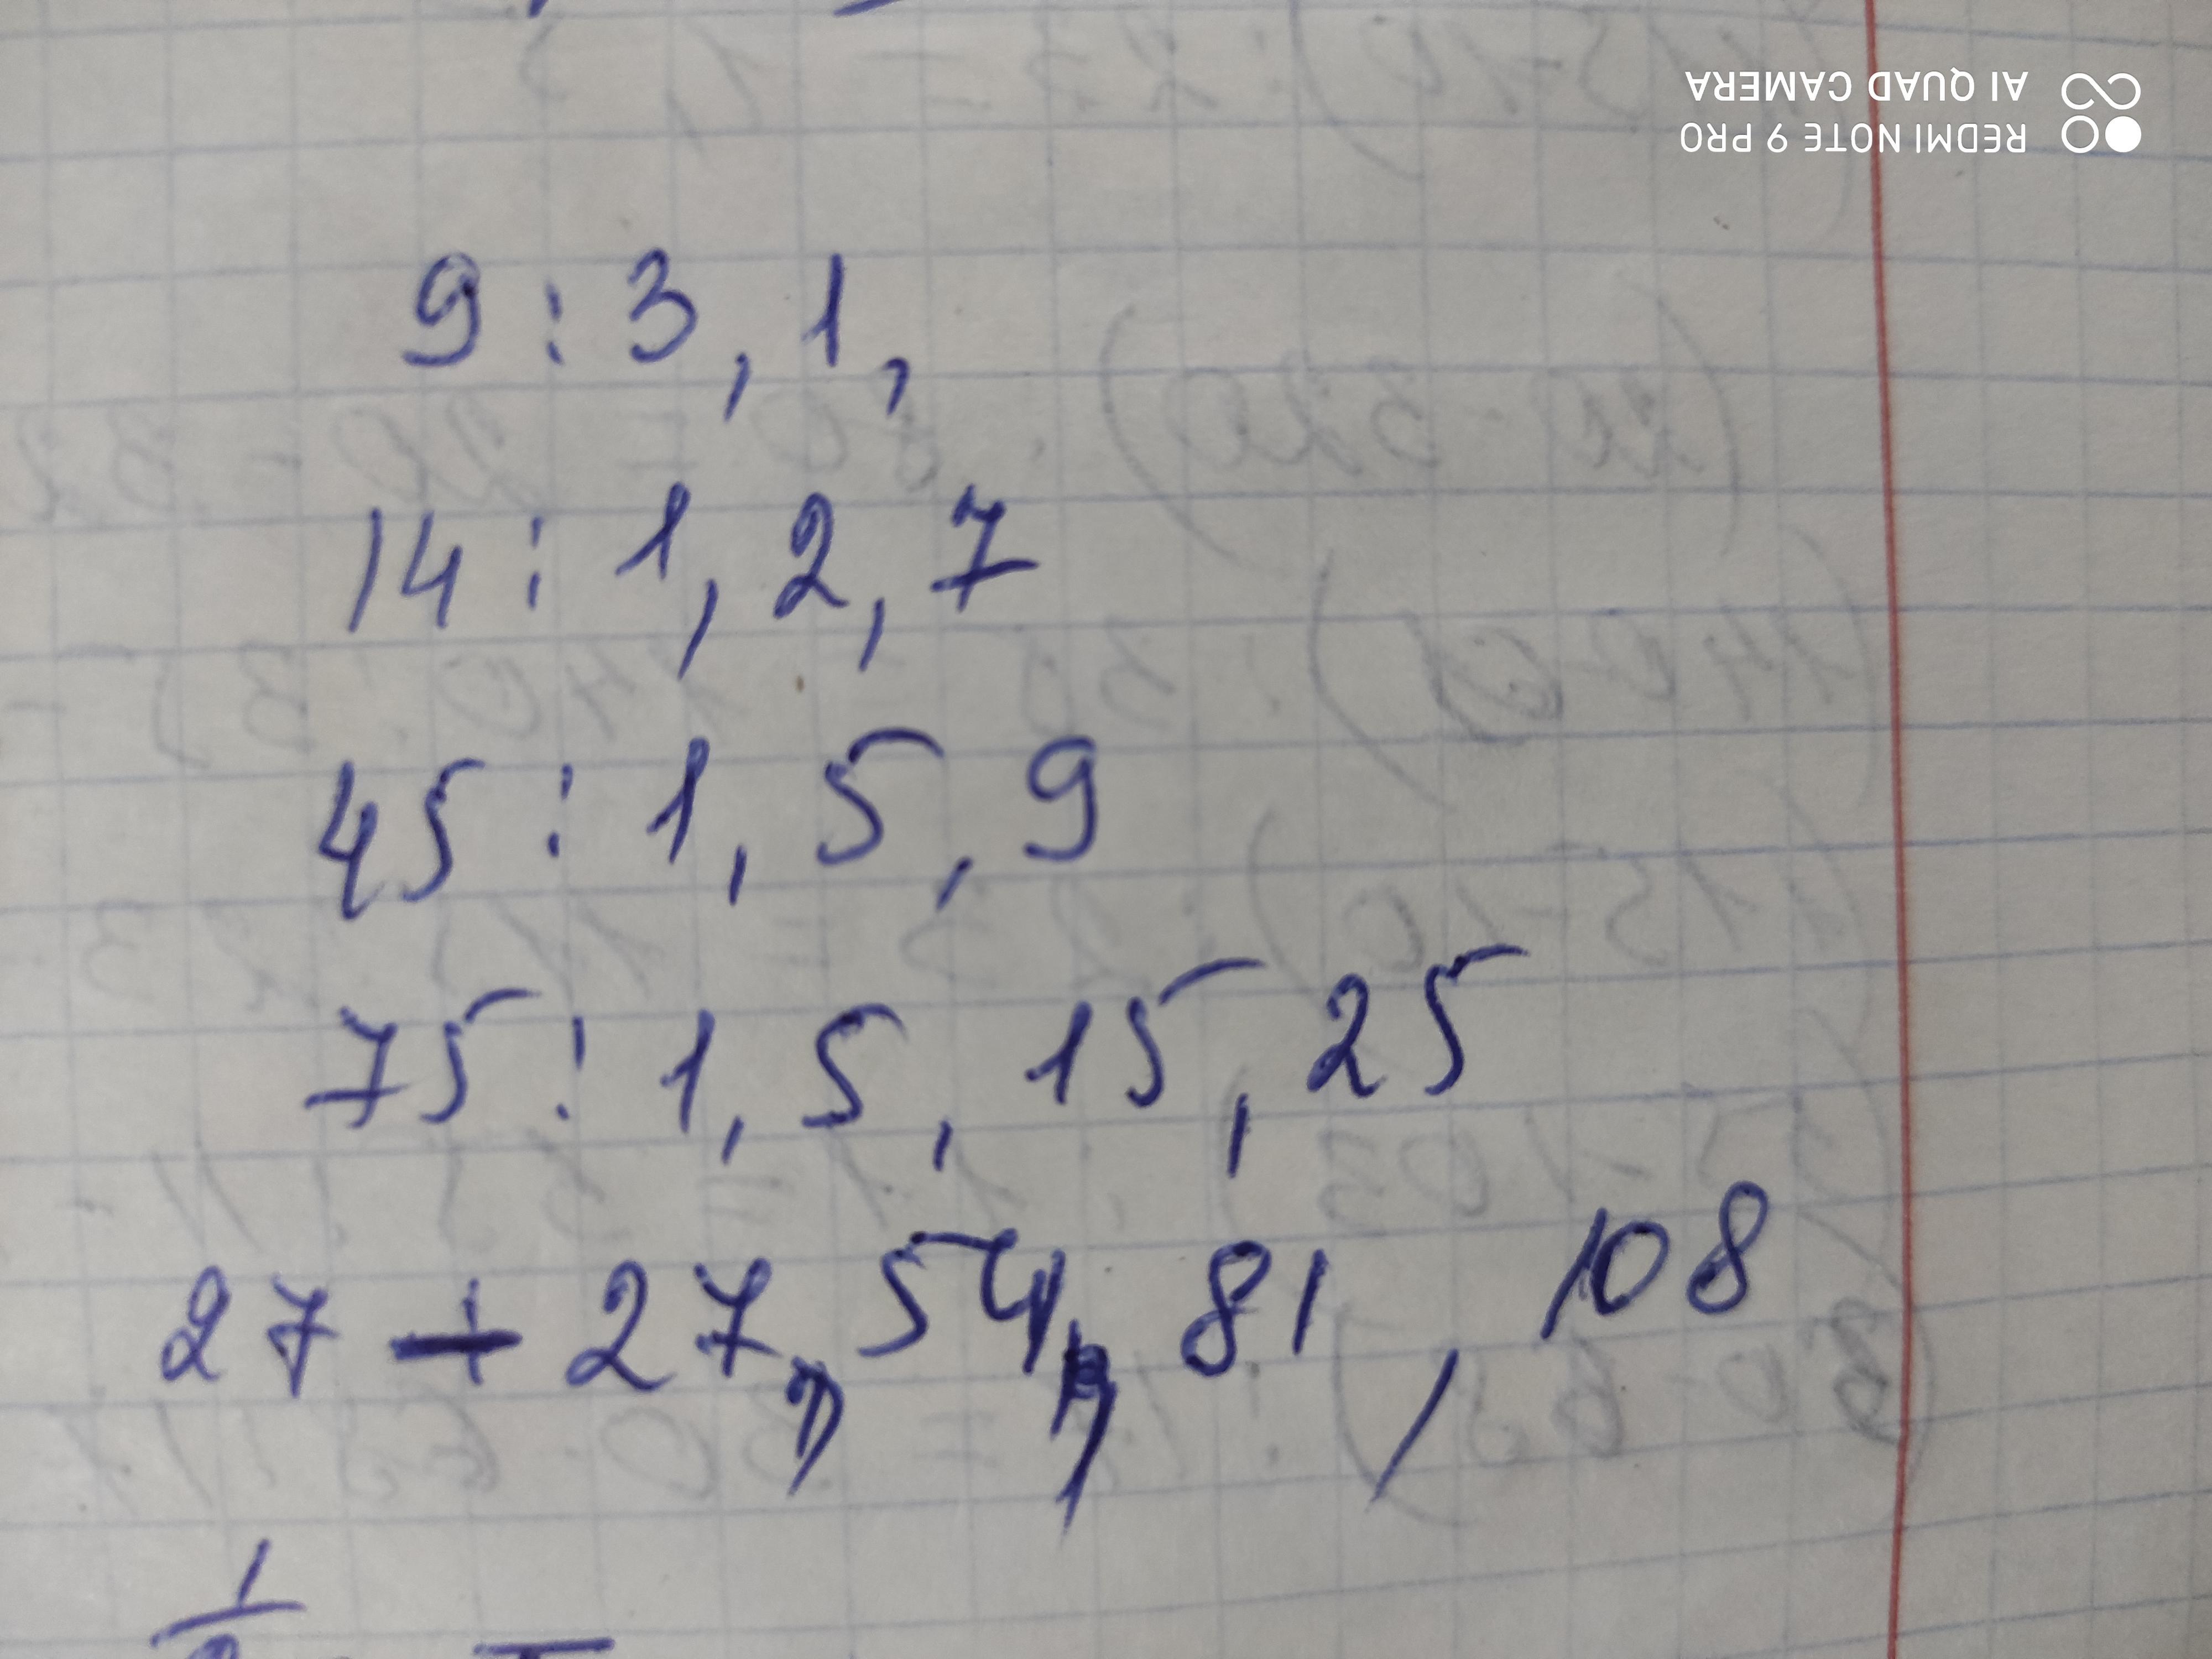 REDMI NOTE 9 PRO
AI QUAD CAMERA
9 : 3, 1,
14 : 1, 2, 7
45 : 1, 5, 9
75 : 1, 5, 15, 25
27 + 27, 54, 81, 108
1